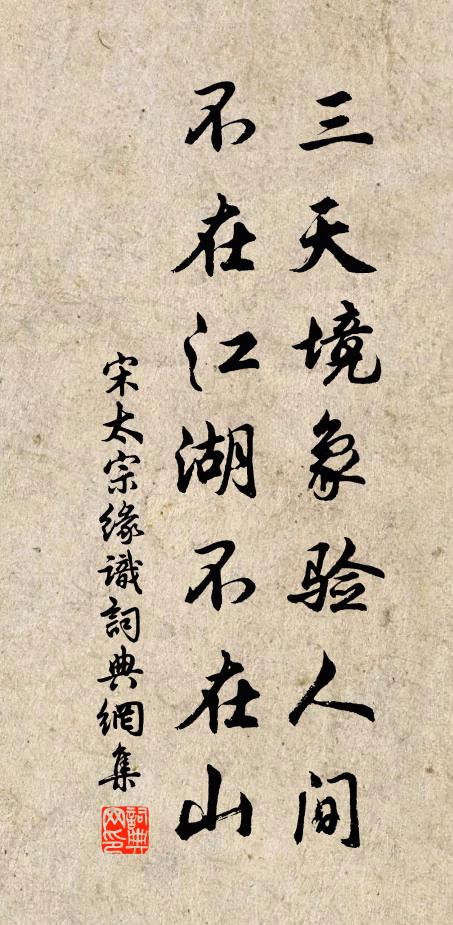 三天境象验人间
不在江湖不在山
宋太宗缘識詞典網集
詞典網印